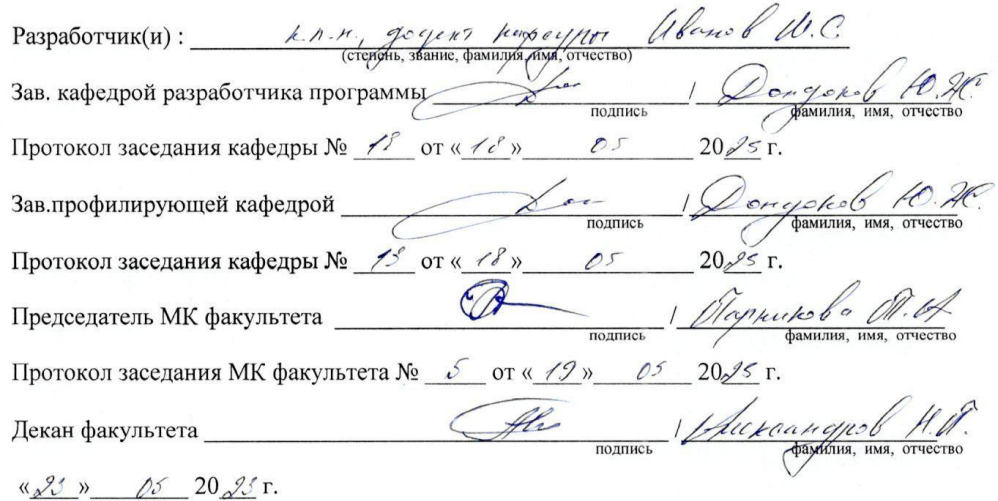 Разработчик(и) : к.п.н., доцент кафедры Иванов И.С.
(степень, звание, фамилия, имя, отчество)
Зав. кафедрой разработчика программы / Дондоков Ю.Ж.
подпись фамилия, имя, отчество
Протокол заседания кафедры № от «18» 05 2025 г.
Зав.профилирующей кафедрой / Дондоков Ю.Ж.
подпись фамилия, имя, отчество
Протокол заседания кафедры № 13 от «18» 05 2025 г.
Председатель МК факультета / Парникова Т.А
подпись фамилия, имя, отчество
Протокол заседания МК факультета № 5 от «19» 05 2025 г.
Декан факультета / Александров Н.П.
подпись фамилия, имя, отчество
«23» 05 2023 г.